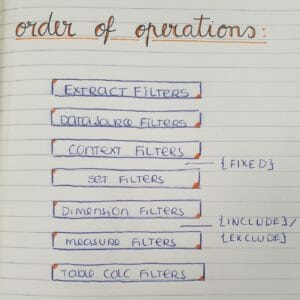 order of operations:
EXTRACT FILTERS
DATA SOURCE FILTERS
CONTEXT FILTERS
{FIXED}
SET FILTERS
DIMENSION FILTERS
{INCLUDE}/
{EXCLUDE}
MEASURE FILTERS
TABLE CALC FILTERS